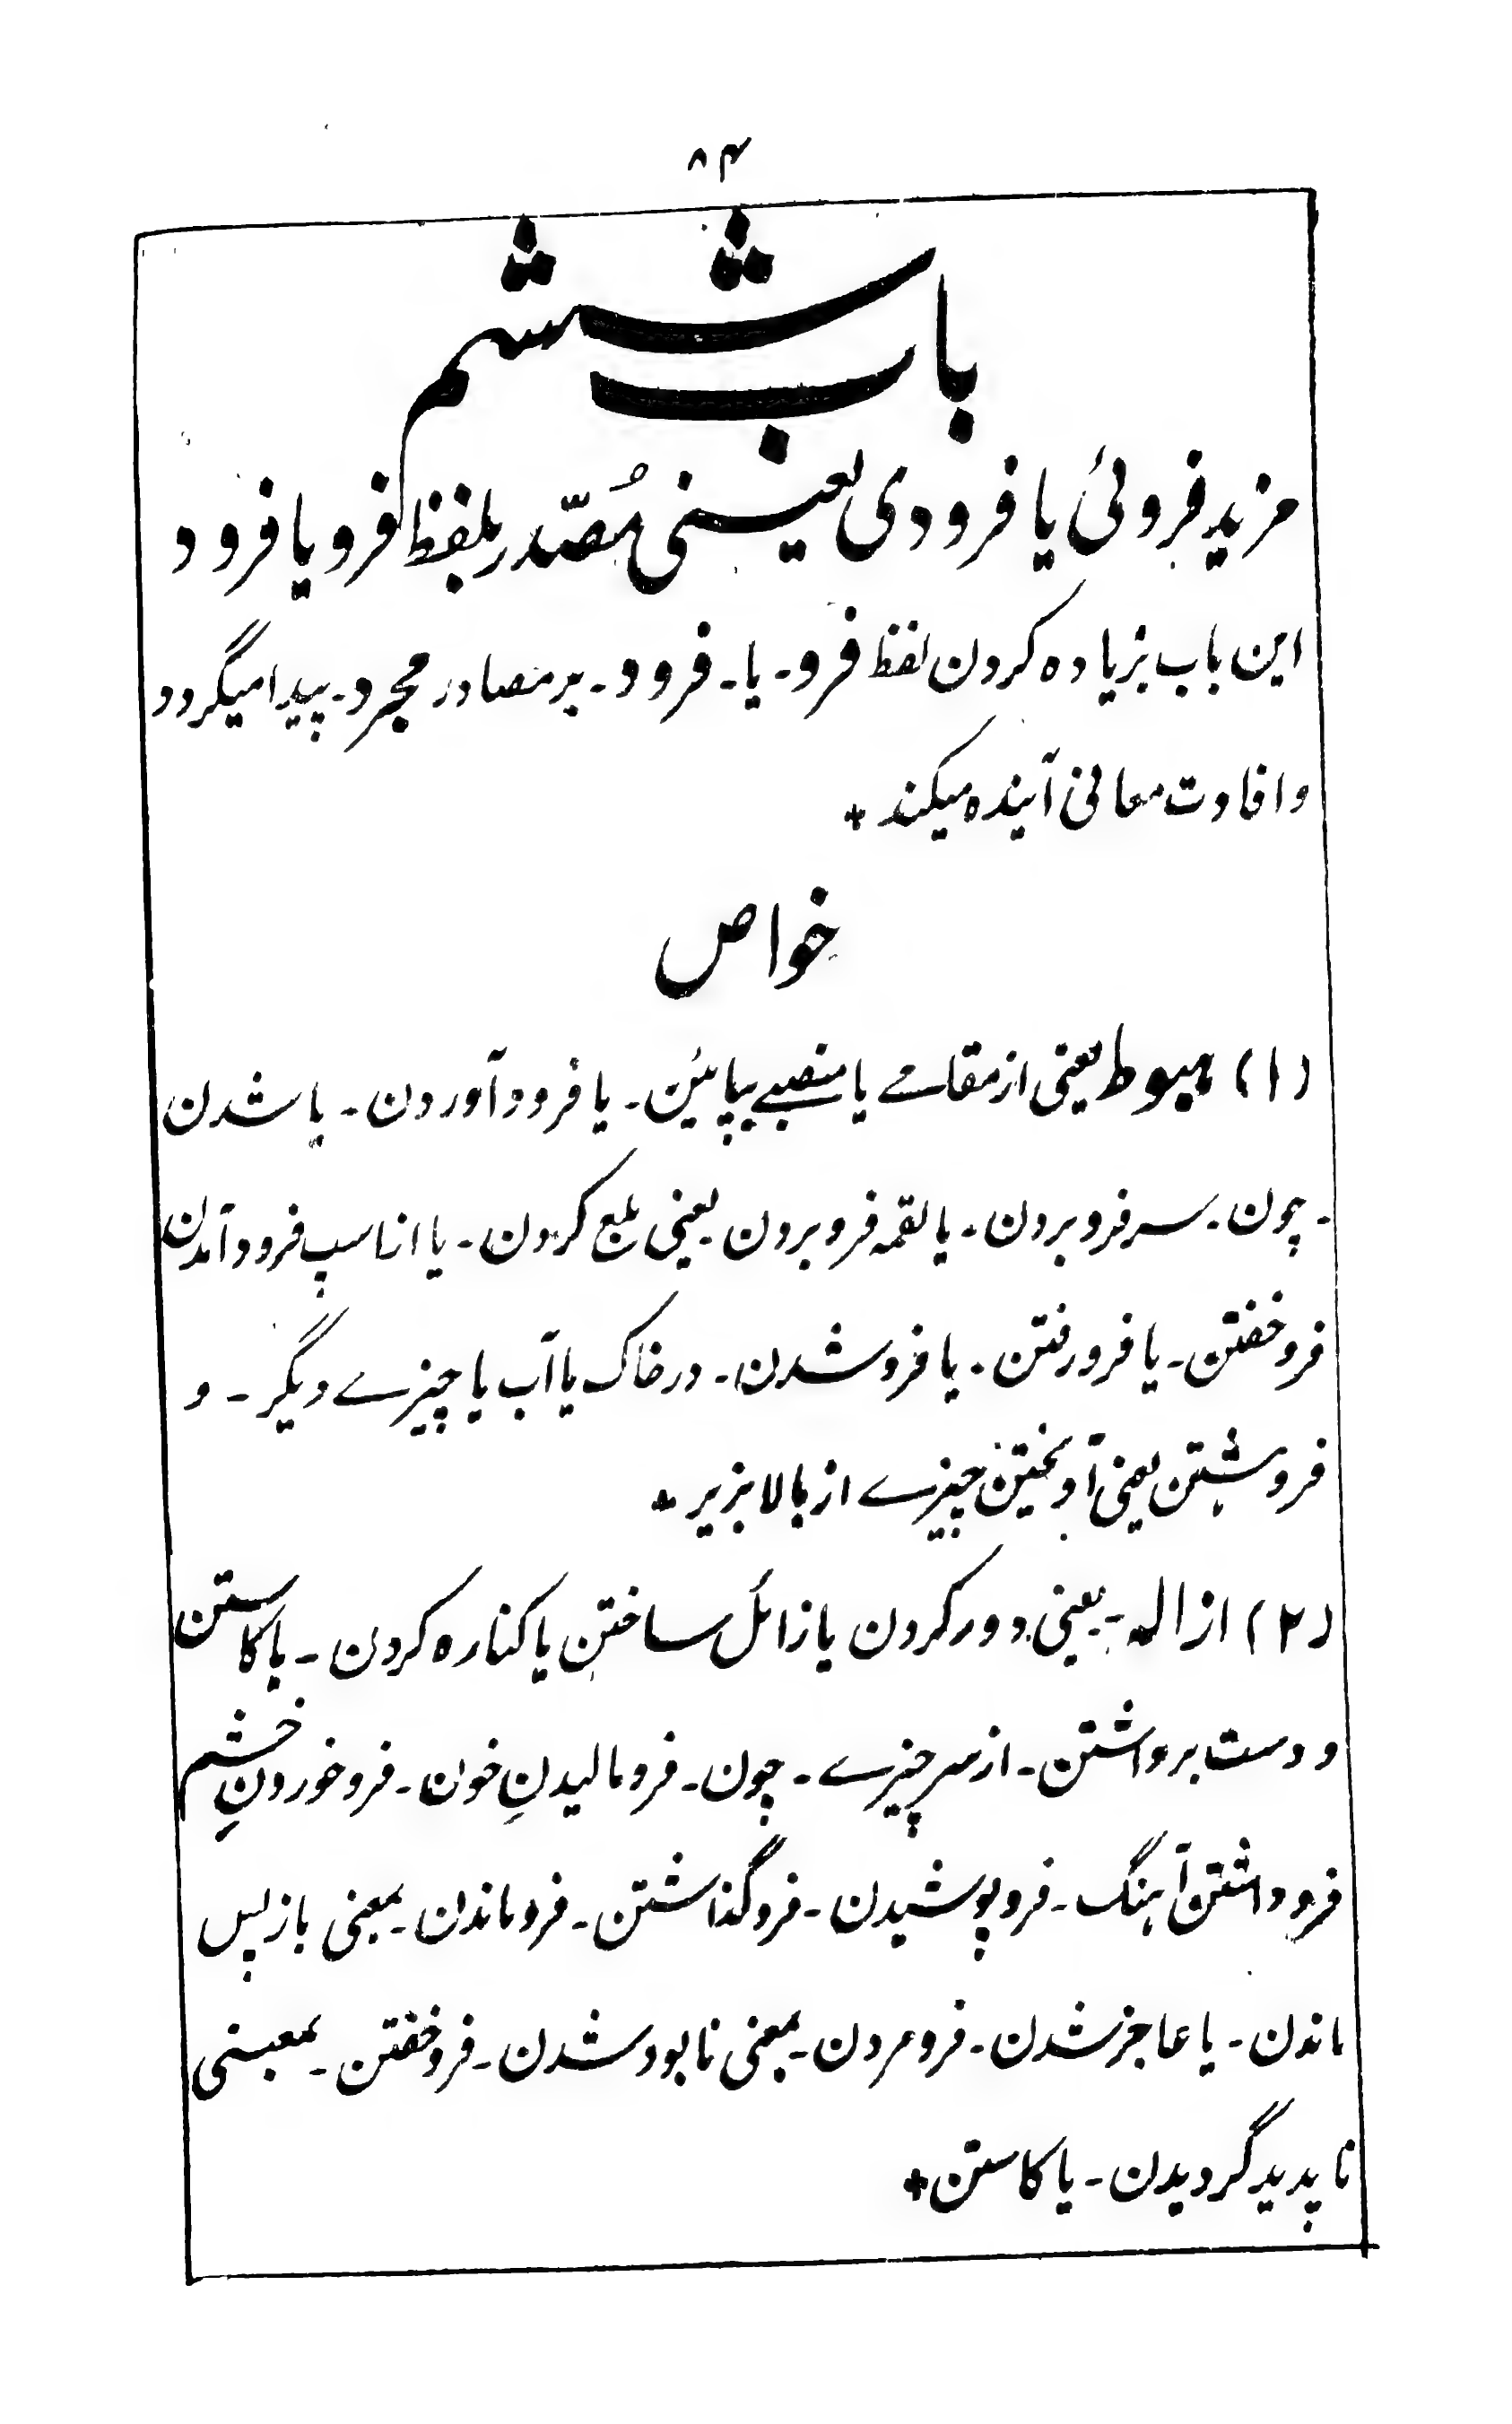 ۸۴
باب ششم
مزید فروئی یا فرودی یعنی مُصدّر بلفظ فرو یا فرود
این باب بزیاده کردن لفظ فرو۔ یا۔ فرود۔ بر مصادر مجرد۔ پیدا میگردد
و افادت معانی آینده میکند +
خواص
(۱) هبوط یعنی از مقامے یا منصبے بپائین۔ یا فرود آوردن۔ یا شدن
۔ چون۔ سر فرو بردن۔ یا لقمه فرو بردن یعنی بلع کردن۔ یا از اسپ فرود آمدن
فرو خفتن۔ یا فرو رفتن۔ یا فرو شدن۔ در خاک یا آب یا چیزے دیگر۔ و
فروهشتن یعنی آویختن چیزے از بالا بزیر +
(۲) ازاله۔ یعنی دور کردن یا زائل ساختن یا کناره کردن۔ یا کاستن
و دست برداشتن۔ از سر چیزے۔ چون۔ فرو مالیدنِ خون۔ فرو خوردنِ خشم
فرو داشتن آهنگ۔ فرو پوشیدن۔ فرو گذاشتن۔ فرو ماندن۔ بمعنی باز پس
ماندن۔ یا عاجز شدن۔ فرو مردن۔ بمعنی نابود شدن۔ فرو خفتن۔ بمعنی
ناپدید گردیدن۔ یا کاستن +